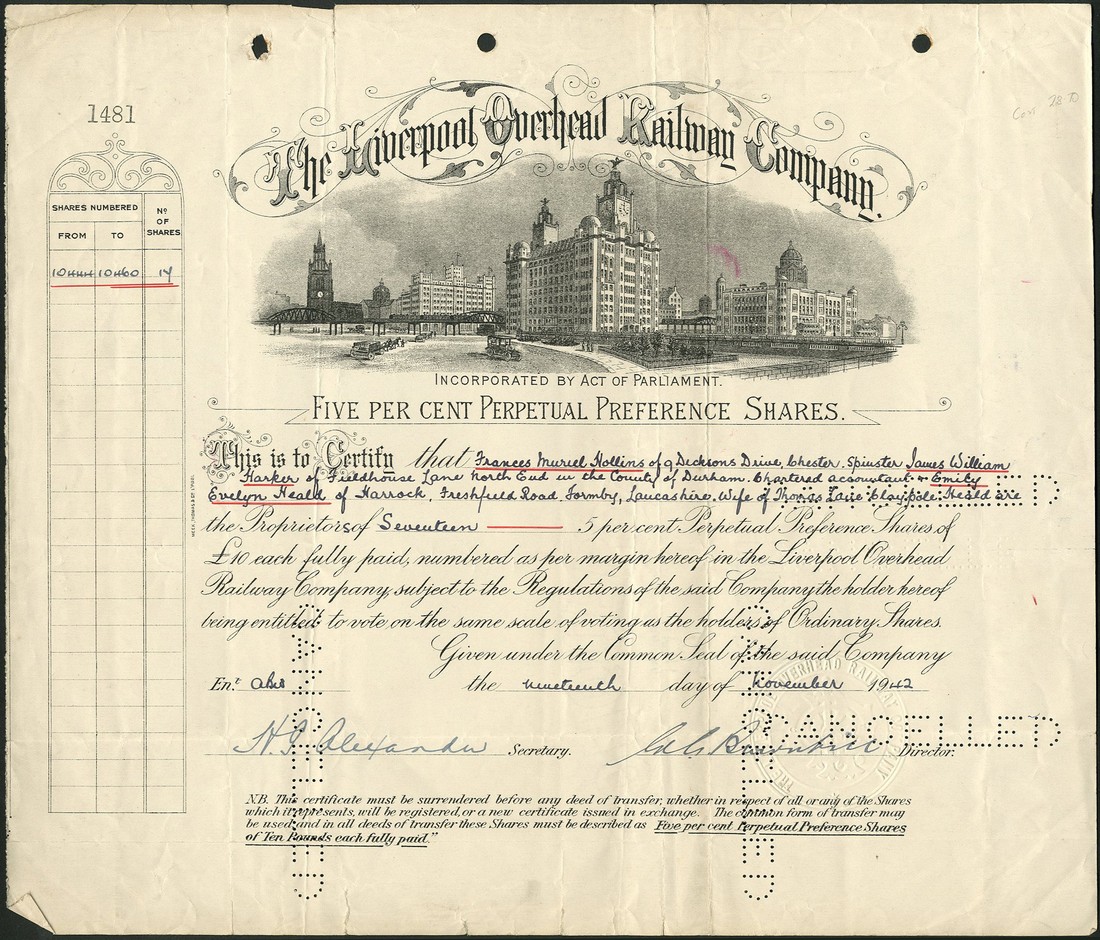 1481
The Liverpool Overhead Railway Company.
SHARES NUMBERED
FROM TO
Nº OF SHARES
10444 10460 17
INCORPORATED BY ACT OF PARLIAMENT.
FIVE PER CENT PERPETUAL PREFERENCE SHARES.
This is to Certify that Frances Muriel Hollins of 9 Dicksons Drive, Chester, Spinster James William
Harker of Fieldhouse Lane North End in the County of Durham. Chartered accountant & Emily
Evelyn Heald of Harrock, Freshfield Road, Formby, Lancashire. Wife of Thomas Claypole Heald are
the Proprietors of Seventeen 5 per cent. Perpetual Preference Shares of
£10 each fully paid, numbered as per margin hereof in the Liverpool Overhead
Railway Company, subject to the Regulations of the said Company, the holder hereof
being entitled to vote on the same scale of voting as the holders of Ordinary Shares.
Given under the Common Seal of the said Company
Ent. the nineteenth day of November 1942
H. J. Alexander Secretary. Director.
N.B. This certificate must be surrendered before any deed of transfer, whether in respect of all or any of the Shares
which it represents, will be registered, or a new certificate issued in exchange. The common form of transfer may
be used, and in all deeds of transfer these Shares must be described as Five per cent Perpetual Preference Shares
of Ten Pounds each fully paid."
CANCELLED
CANCELLED
CANCELLED
CANCELLED